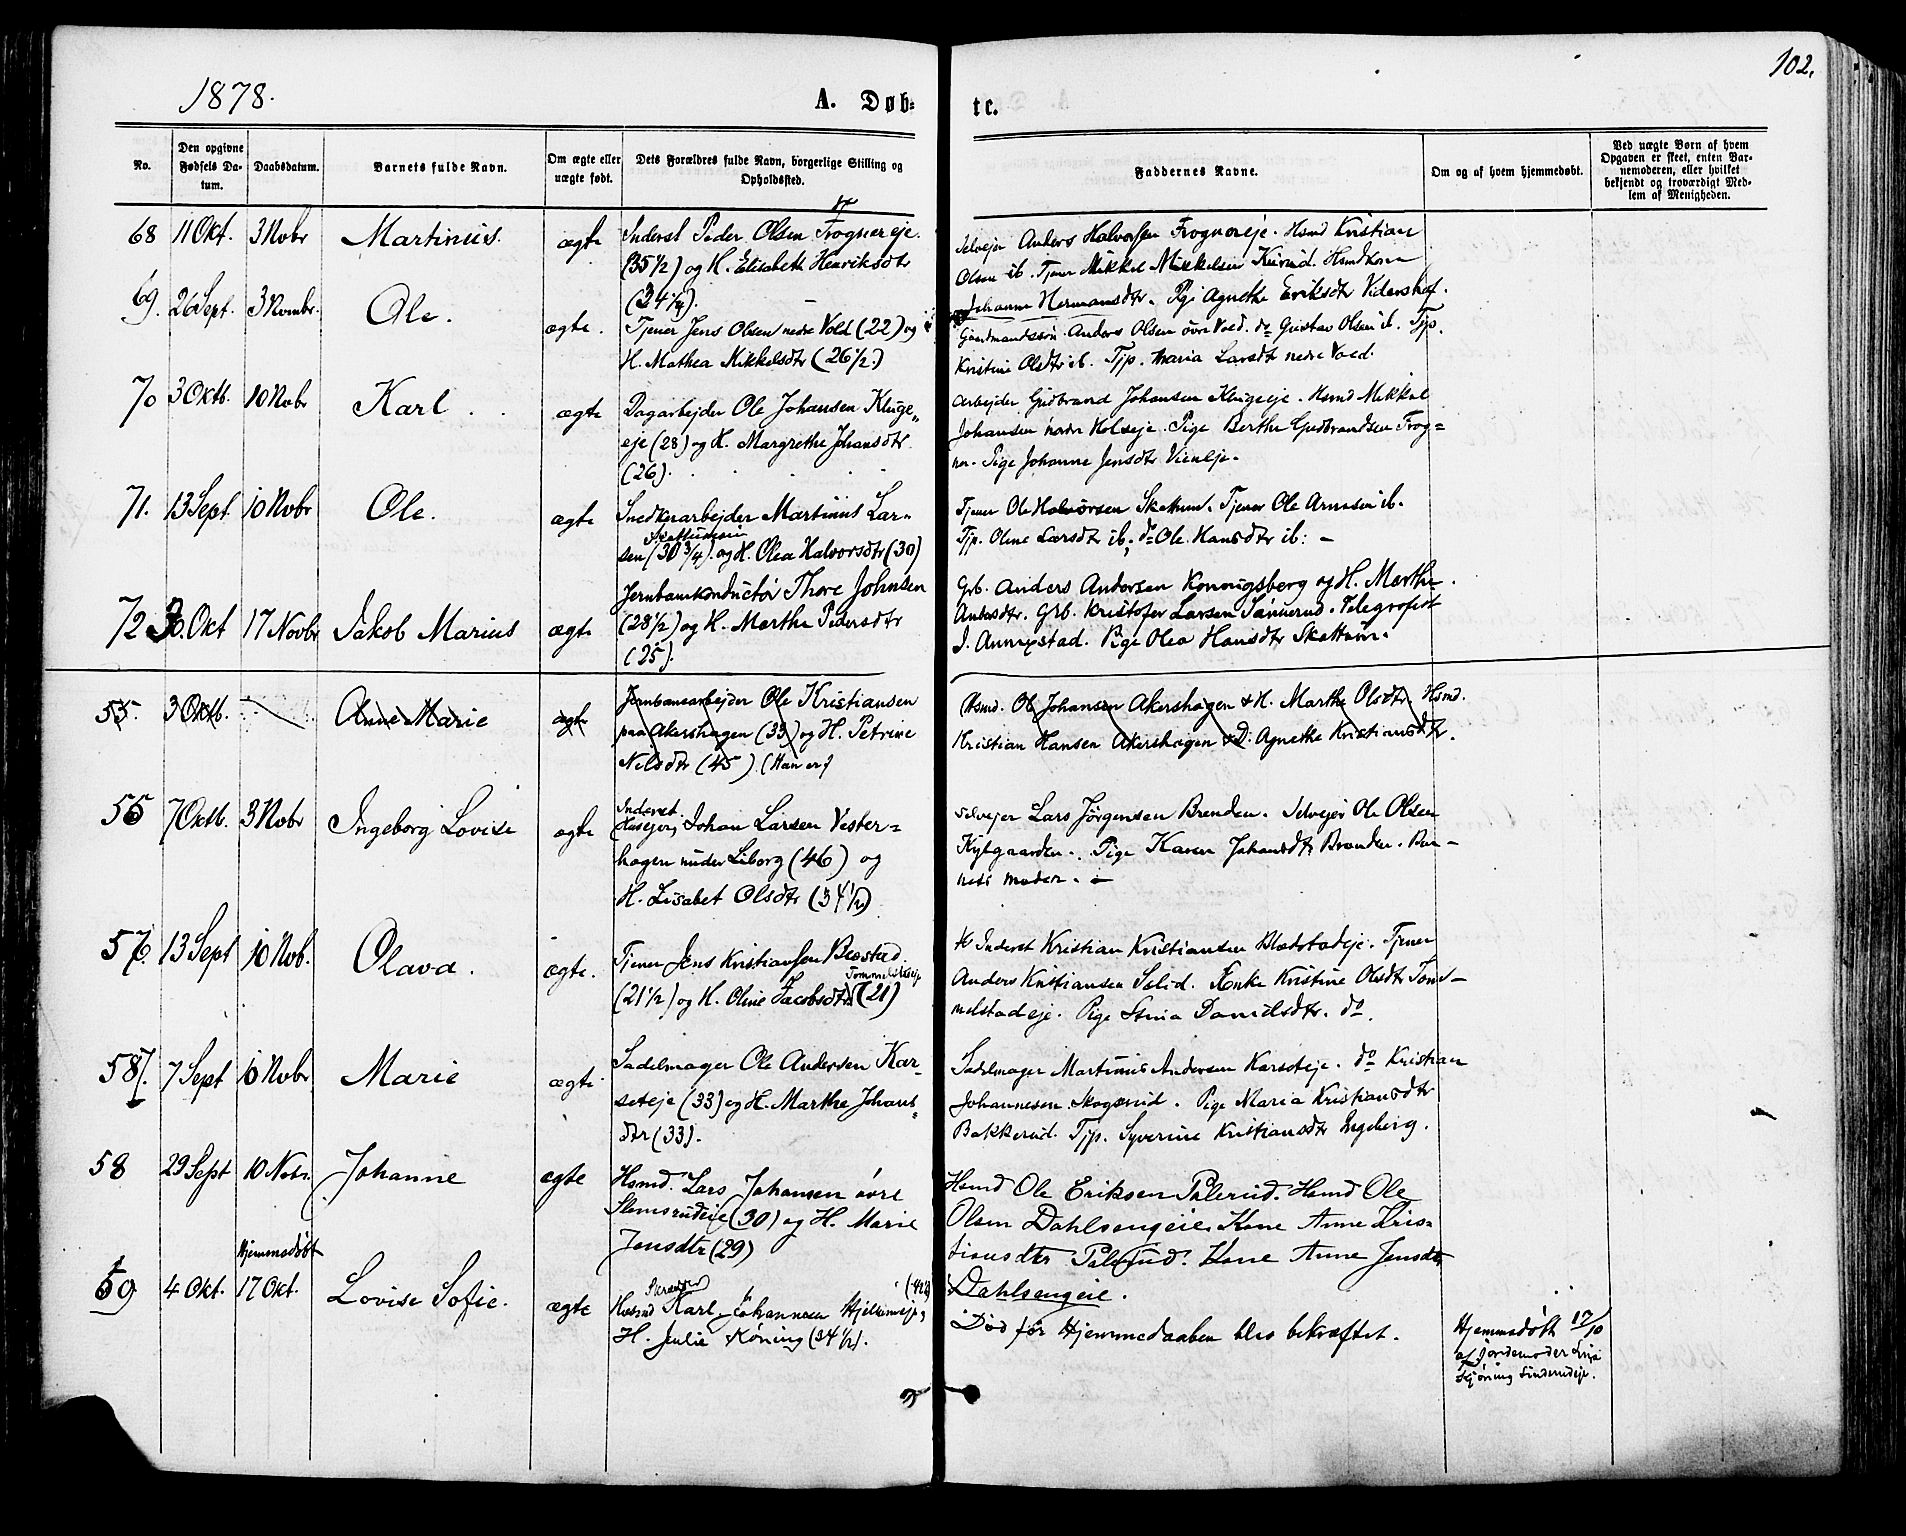 1878.
A. Døb-
te.
102.
No.
Den opgivne Fødsels Datum.
Daabsdatum.
Barnets fulde Navn.
Om ægte eller uægte født.
Dets Forældres fulde Navn, borgerlige Stilling og Opholdssted.
Faddernes Navne.
Om og af hvem hjemmedøbt.
Ved uægte Børn af hvem Opgaven er skeet, enten Barnemoderen, eller hvilket bekjendt og troværdigt Medlem af Menigheden.
68 11 Okt. 3 Nobr Martinus. ægte
Inderst Peder Olsen Frognereje.
(35 1/2) og H. Elisabeth Henriksdtr
(34 1/4).
Selvejer Anders Halvorsen Frognereje. Hsmd Kristian
Olsen ib. Tjener Mikkel Mikkelsen Hsmdkone
Johanne Hermansdtr. Pige Agnethe Eriksdtr Vidershof.
69. 26 Sept. 3 Novmbr. Ole. ægte.
Tjener Jens Olsen nedre Vold (22) og
H. Mathea Mikkelsdtr (26 1/2.)
Gaardmandssøn Anders Olsen øvre Vold. do Gustav Olsen ib. Tjp.
Kristine Olsdtr ib. Tjp. Maria Larsdtr nedre Vold.
70 3 Oktb. 10 Nobr Karl. ægte
Dagarbejder Ole Johansen Kluge-
eje (28) og H. Margrethe Johansdtr
(26).
Arbejder Gudbrand Johansen Klugeeje. Hsmd Mikkel
Johansen nedre Holseje. Pige Berthe Gudbrandsen Frog-
ner. Pige Johanne Jensdtr Vieneje.
71. 13 Sept. 10 Nobr Ole. ægte
Snedkerarbejder Martinus Lar-
sen (30 3/4) og H. Olea Halvorsdtr (30)
Tjener Ole Halvorsen Skattum. Tjener Ole Arnesen ib.
Tjp. Oline Larsdtr ib. do Ole Hansdtr ib:
72 30. Okt 17 Novbr Jakob Marius ægte
Jernbanekonduktør Thore Johnsen
(28 1/2) og H. Marthe Pedersdtr
(25).
Grb. Anders Andersen Kongsberg og H. Marthe
Andersdtr. Grb. Kristofer Larsen Sønerud. Telegrafist
J. Annexstad. Pige Olea Hansdtr Skattum.
55. 3 Oktb. Anne Marie ægte
Jernbanearbejder Ole Kristiansen
paa Akershagen (33) og H. Petrine
Nilsdtr (45) (Han er)
Hsmd. Ole Johansen Akershagen & H. Marthe Olsdtr. Hsmd.
Kristian Hansen Akershagen & D. Agnethe Kristiansdtr.
55 7 Oktb. 3 Nobr Ingeborg Lovise ægte
Inderst
Husejer Johan Larsen Vester-
hagen under Liborg (46) og
H. Lisabet Olsdtr (34 1/2)
Selvejer Lars Jørgensen Brenden. Selvejer Ole Olsen
Kylgaarden. Pige Karen Johansdtr Brenden. Bar-
nets moder.
57. 13 Sept 10 Nob. Olava. ægte.
Tjener Jens Kristiansen Bæstad
(21 1/2) og H. Oline Jacobsdtr (21)
Inderst Kristian Kristiansen Blæstadeje. Tjener
Anders Kristiansen Solid. Enke Kristine Olsdtr Tom-
melstadeje. Pige Stina Danielsdtr. do.
58. 7 Sept 10 Nobr Marie ægte.
Sadelmager Ole Andersen Kar-
seteje (33) og H. Marthe Johans-
dtr (33).
Sadelmager Martinus Andersen Karseteje. do Kristian
Johannesen Skogsrud. Pige Maria Kristiansdtr
Bakkerud. Tjp. Syverine Kristiansdtr Engebjerg.
58 29 Sept 10 Nobr. Johanne ægte
Hsmd. Lars Johansen øvre
Slemsrudeie (30) og H. Marie
Jensdtr (29)
Hsmd Ole Eriksen Pålerud. Hsmd Ole
Olsen Dahlsengeie. Kone Anne Kris-
tiansdtr Pålerud. Kone Anne Jensdtr
Dahlsengeie.
59 4 Okt. Hjemmedøbt
17 Okt. Lovise Sofie. ægte
Husmd Karl Johannsen
H. Julie Køning (34 1/2).
Død før Hjemmedaaben blev bekræftet.
Hjemmedøbt 17/10
af Jordemoder